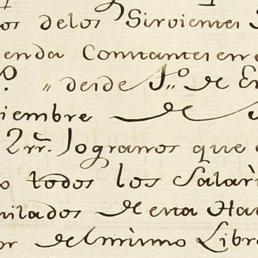 os delos Sirvientes
enda Constantes en e
o. " desde 1.º de En
iembre de
2 rr.s logranos que
o todos los Salari
nilados de ena Ha
or del mismo Libr